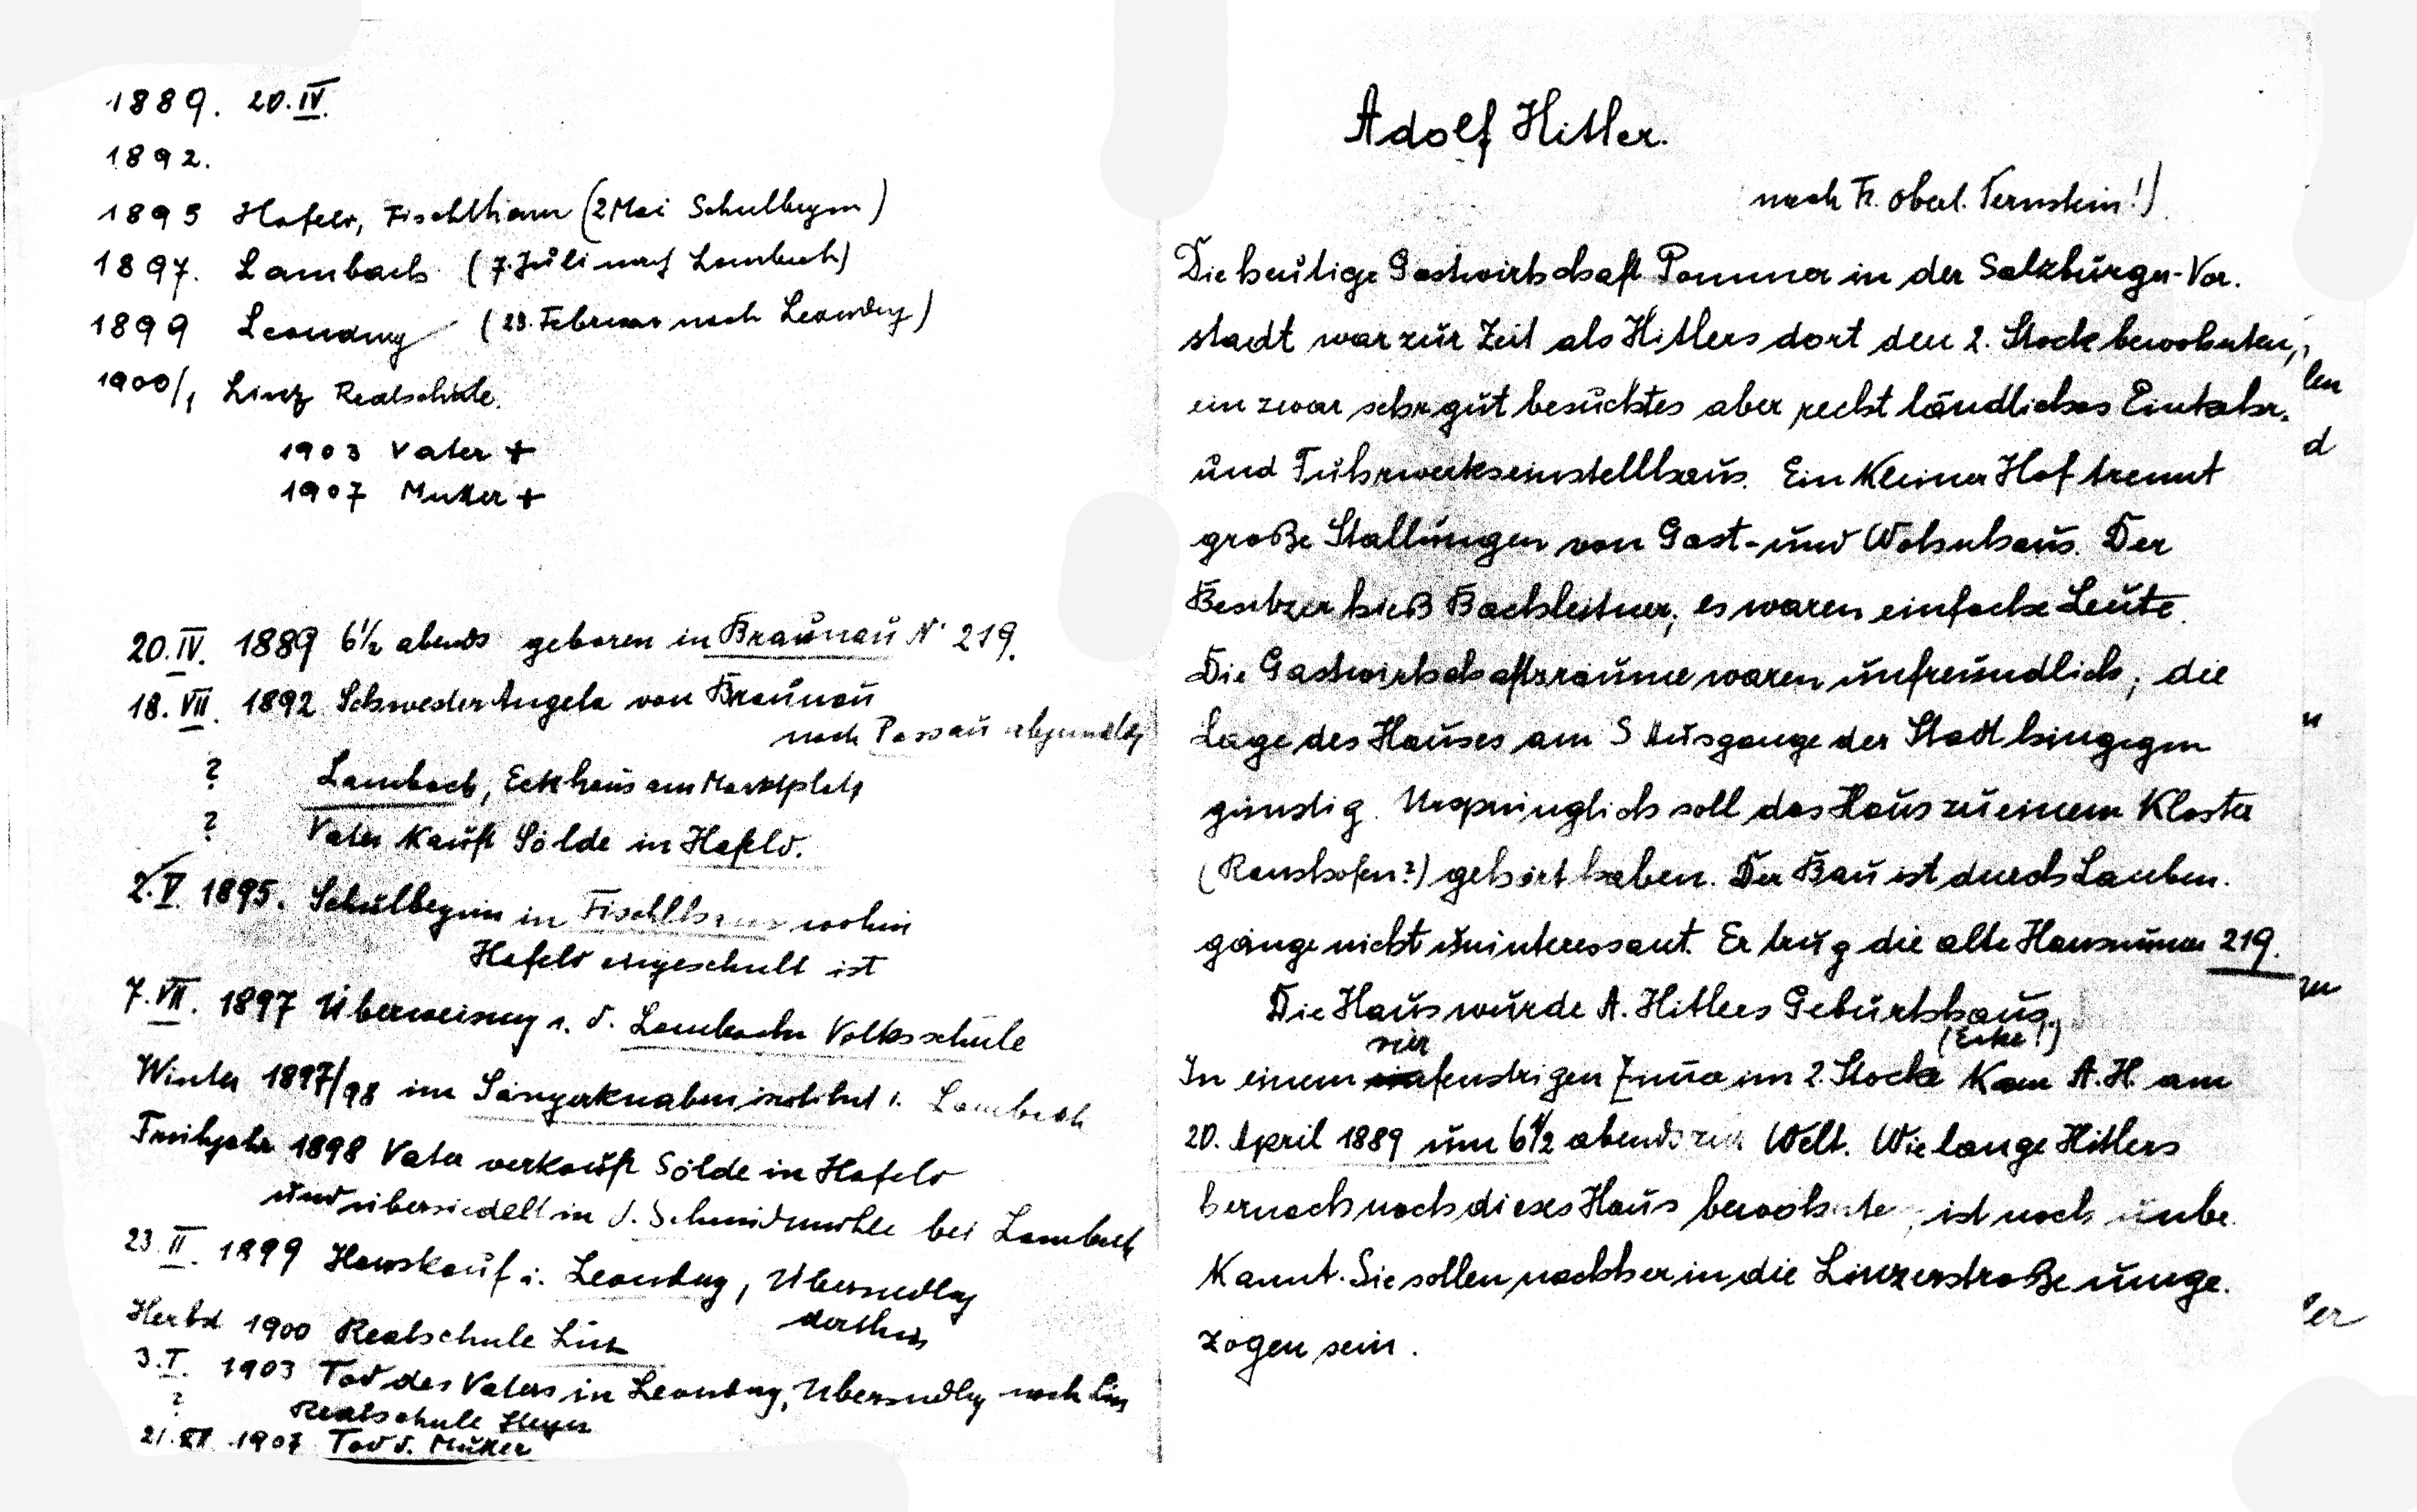 1889. 20.IV.
1892.
1895 Hafeld, Fischlham (2 Mai Schulbeginn)
1897. Lambach (7. Juli nach Lambach)
1899 Leonding (23. Februar nach Leonding)
1900/1 Linz Realschule.
1903 Vater +
1907 Mutter +
20.IV. 1889 6½ abends geboren in Braunau N° 219.
18.VII. 1892 Schwester Angela von Braunau
nach Passau abgemeldet
? Lambach, Eckhaus am Marktplatz
? Vater kauft Sölde in Hafeld.
2.V. 1895. Schulbeginn in Fischlham wohin
Hafeld eingeschult ist
7.VII. 1897 Überweisung i. d. Lambacher Volksschule
Winter 1897/98 im Sängerknabeninstitut i. Lambach
Frühjahr 1898 Vater verkauft Sölde in Hafeld
und übersiedelt in d. Schmidmühle bei Lambach
23.II. 1899 Hauskauf i. Leonding, Übersiedlg
dorthin
Herbst 1900 Realschule Linz
3.I. 1903 Tod des Vaters in Leonding, Übersiedlg nach Linz
? Realschule Steyer
21.XII 1907 Tod d. Mutter
Adolf Hitler.
nach Fr. Oberl. Fernstein!)
Die heutige Gastwirtschaft Pommer in der Salzburger-Vor-
stadt war zur Zeit als Hitlers dort den 2. Stock bewohnten,
ein zwar sehr gut besuchtes aber recht ländliches Einkehr-
und Fuhrwerkseinstellhaus. Ein kleiner Hof trennt
große Stallungen von Gast- und Wohnhaus. Der
Besitzer hieß Bachleitner, es waren einfache Leute.
Die Gastwirtschaftsräume waren unfreundlich, die
Lage des Hauses am S Ausgange der Stadt hingegen
günstig. Ursprünglich soll das Haus zu einem Kloster
(Ranshofen?) gehört haben. Der Bau ist durch Lauben-
gänge nicht uninteressant. Er trug die alte Hausnummer 219.
Die Haus wurde A. Hitlers Geburtshaus.
vier (Ecke!)
In einem fenstrigen Zimmer im 2. Stocke kam A.H. am
20. April 1889 um 6½ abends zur Welt. Wie lange Hitlers
hernach noch dieses Haus bewohnte, ist noch unbe-
kannt. Sie sollen nachher in die Linzerstraße umge-
zogen sein.
len
d
n
zu
er